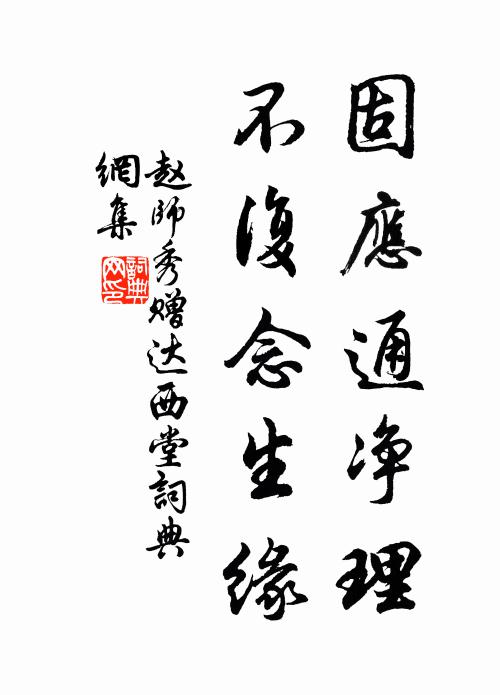 固應通净理
不復念生緣
赵師秀赠达西堂詞典
網集
詞典網印